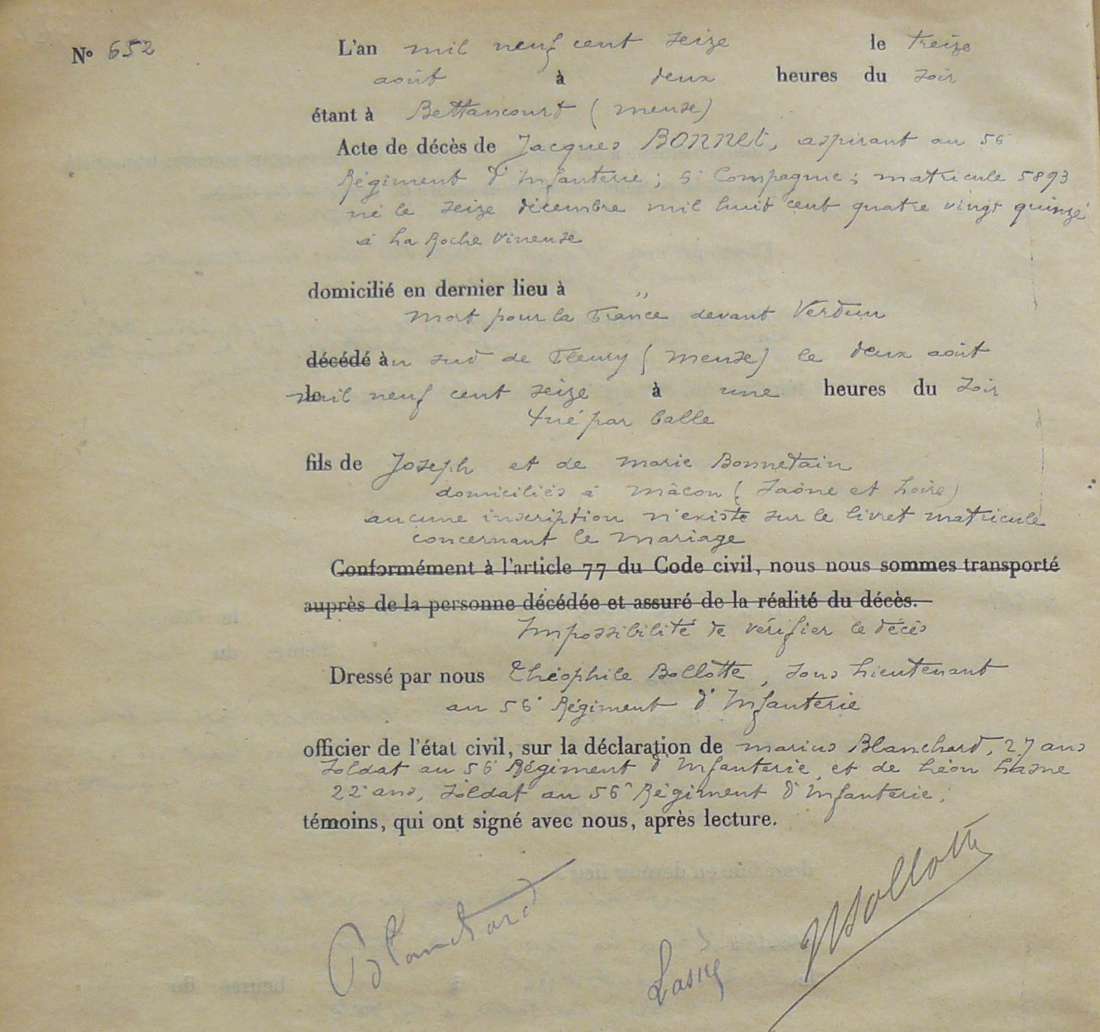 N° 652
L'an mil neuf cent seize le treize
août à deux heures du soir
étant à Bettancourt (meuse)
Acte de décès de Jacques BONNEt, aspirant au 56
Régiment d'Infanterie; 6e Compagnie; matricule 5893
né le seize décembre mil huit cent quatre vingt quinze
à La Roche Vineuse
domicilié en dernier lieu à "
Mort pour la France devant Verdun
décédé au sud de Fleury (Meuse) le deux août
le mil neuf cent seize à une heures du soir
tué par balle
fils de Joseph et de Marie Bonnetain
domiciliés à Mâcon (Saône et Loire)
aucune inscription n'existe sur le livret matricule
concernant le mariage
Conformément à l'article 77 du Code civil, nous nous sommes transporté
auprès de la personne décédée et assuré de la réalité du décès.
Impossibilité de vérifier le décès
Dressé par nous Théophile Bollotte, sous Lieutenant
au 56e Régiment d'Infanterie
officier de l'état civil, sur la déclaration de Marius Blanchard, 27 ans
soldat au 56e Régiment d'Infanterie, et de Léon Lasne
22 ans, soldat au 56e Régiment d'Infanterie,
témoins, qui ont signé avec nous, après lecture.
Blanchard
Lasne
Bollotte